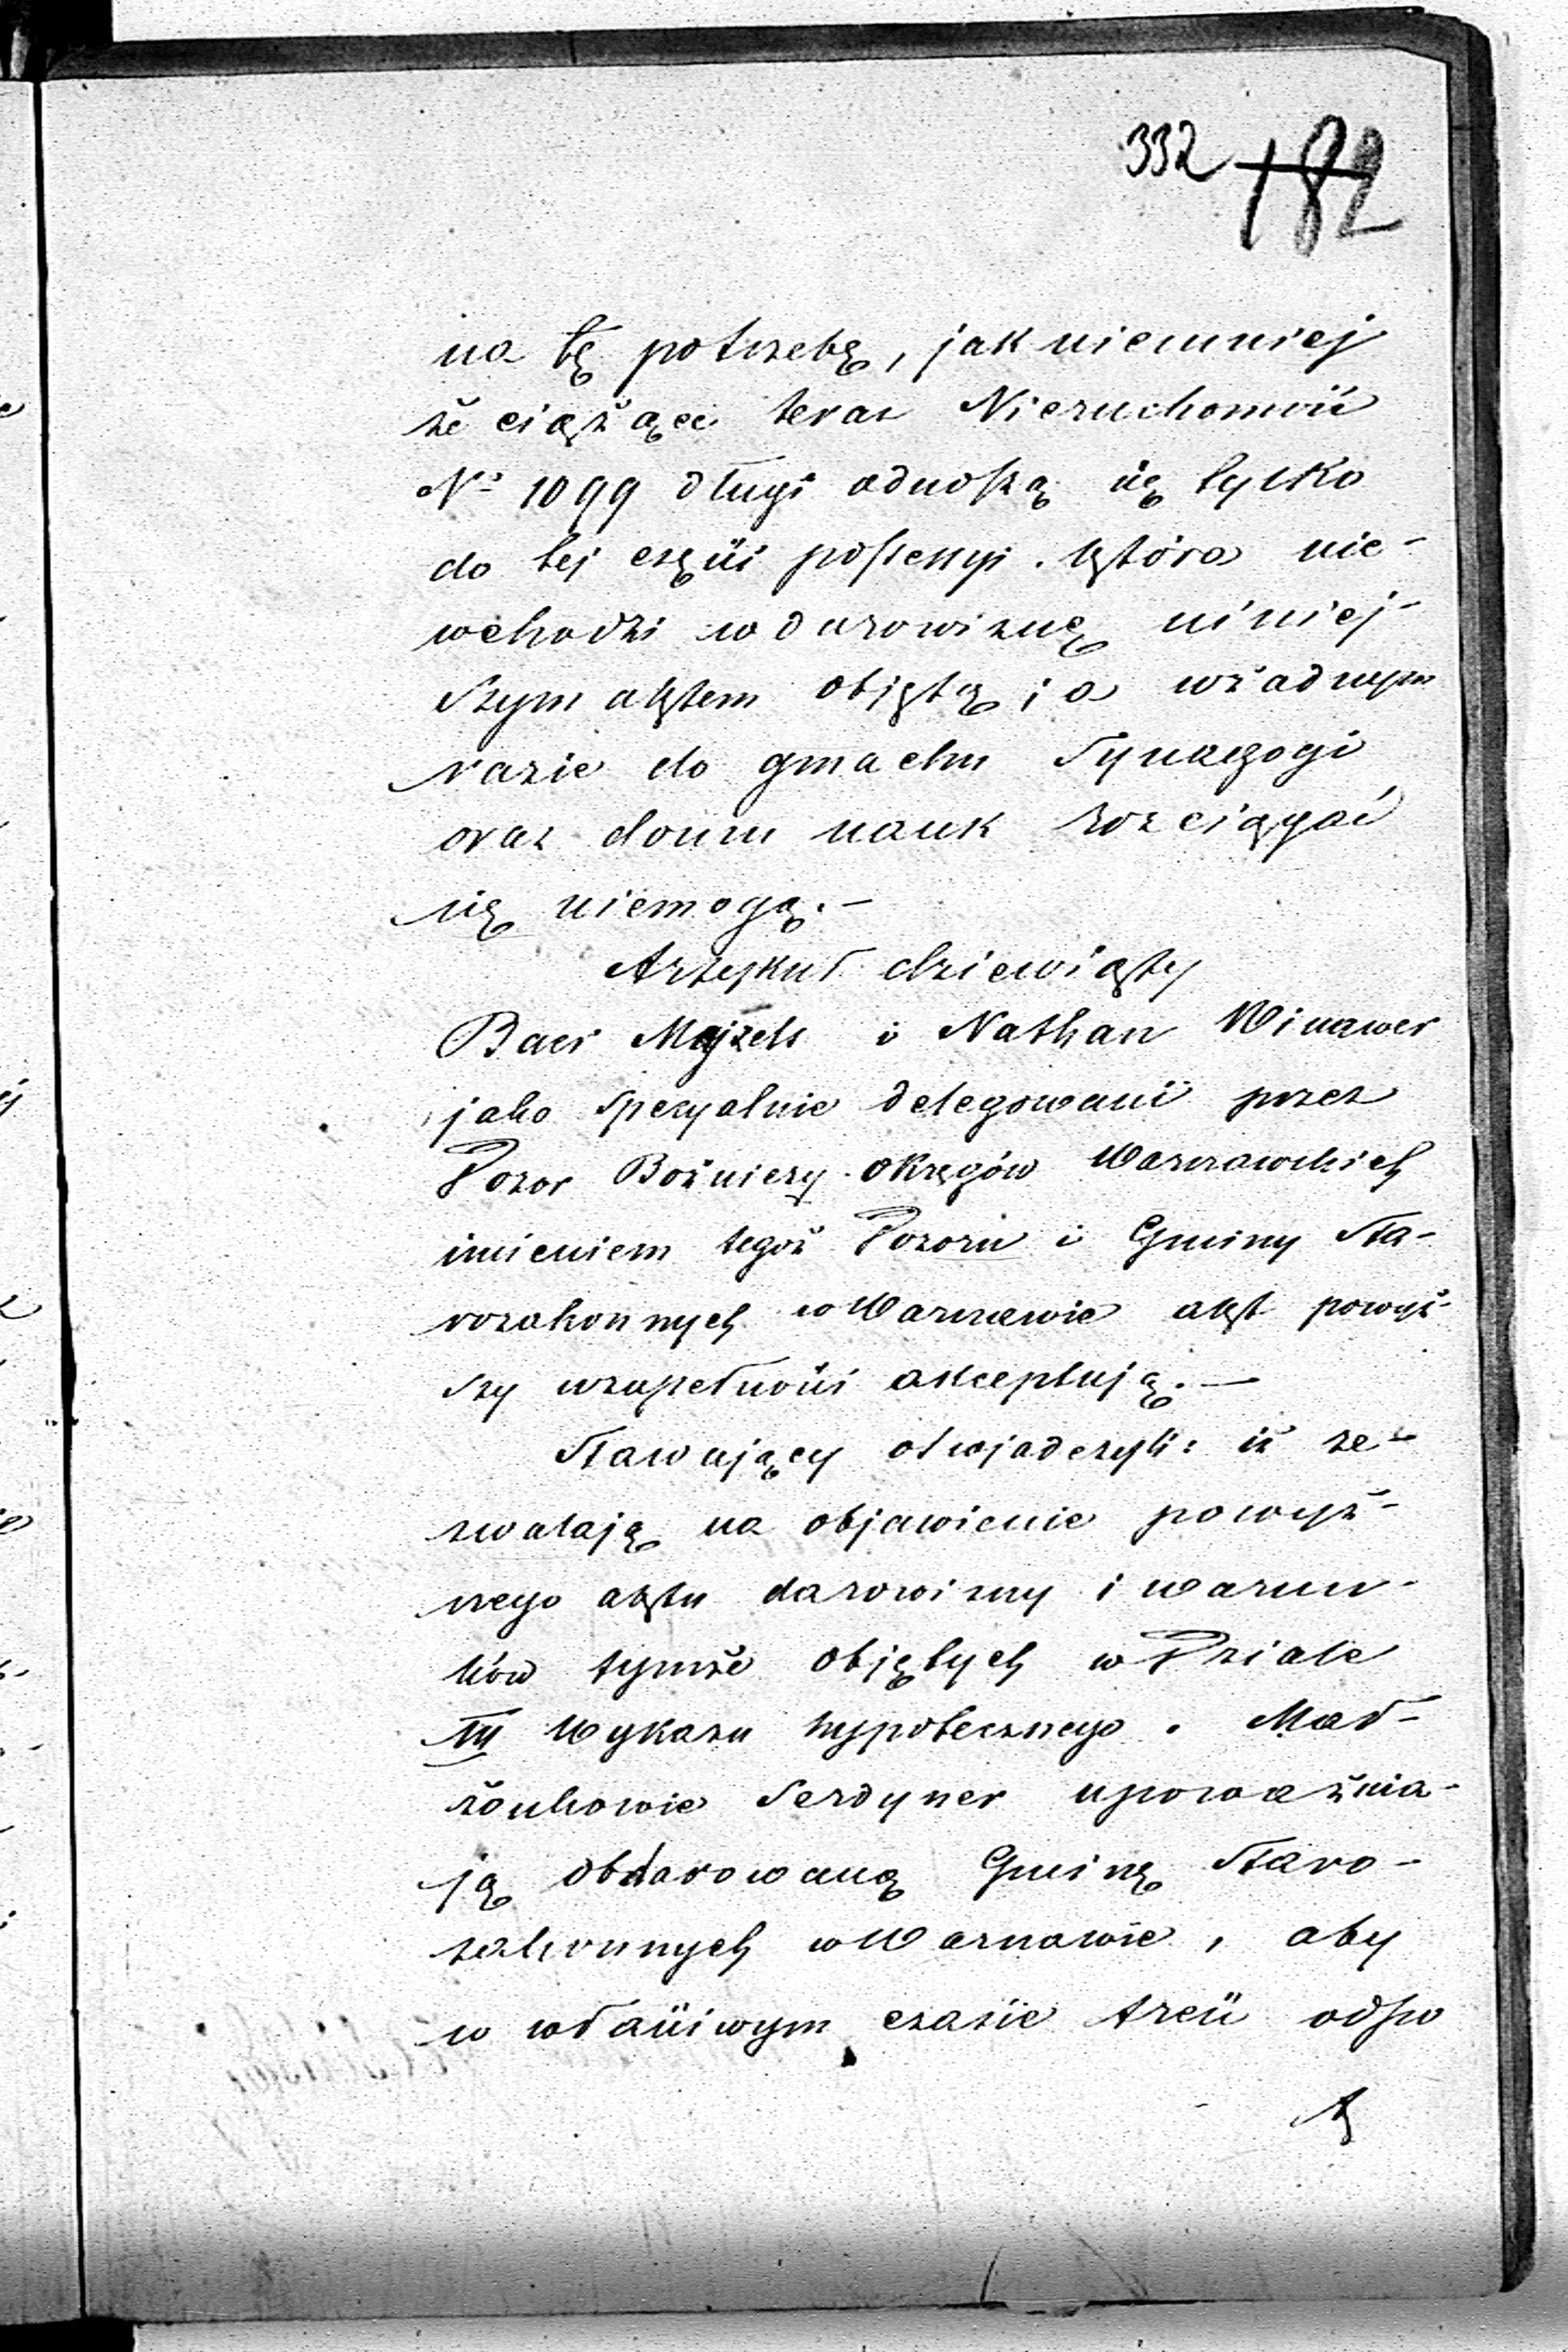 332 182
na tę potrzebę, jak niemniej
że ciążące teraz Nieruchomość
Nº 1099 długi odnoszą się tylko
do tej części possessyi. która nie-
wchodzi w darowiznę niniej-
szym aktem objętą; a wżadnym
razie do gmachu Synagogi
oraz domu nauk rozciągać
się niemogą.-
Artykuł dziewiąty
Baer Majzels i Nathan Winawer
jako specyalnie delegowani przez
Dozor Bożniczy okręgów Warszawskich
imieniem tegoż Dozoru i Gminy Sta-
rozakonnych w Warszawie akt powyż-
szy wzupełności akceptują.-
Stawający oświadczyli: iż ze-
zwalają na objawienie powyż-
szego aktu darowizny i warun-
ków tymże objętych w Dziale
III Wykazu hypotecznego. Mał-
żonkowie Serdyner upoważnia-
ją obdarowaną Gminę Staro-
zakonnych w Warszawie, aby
w właściwym czasie treść odpo